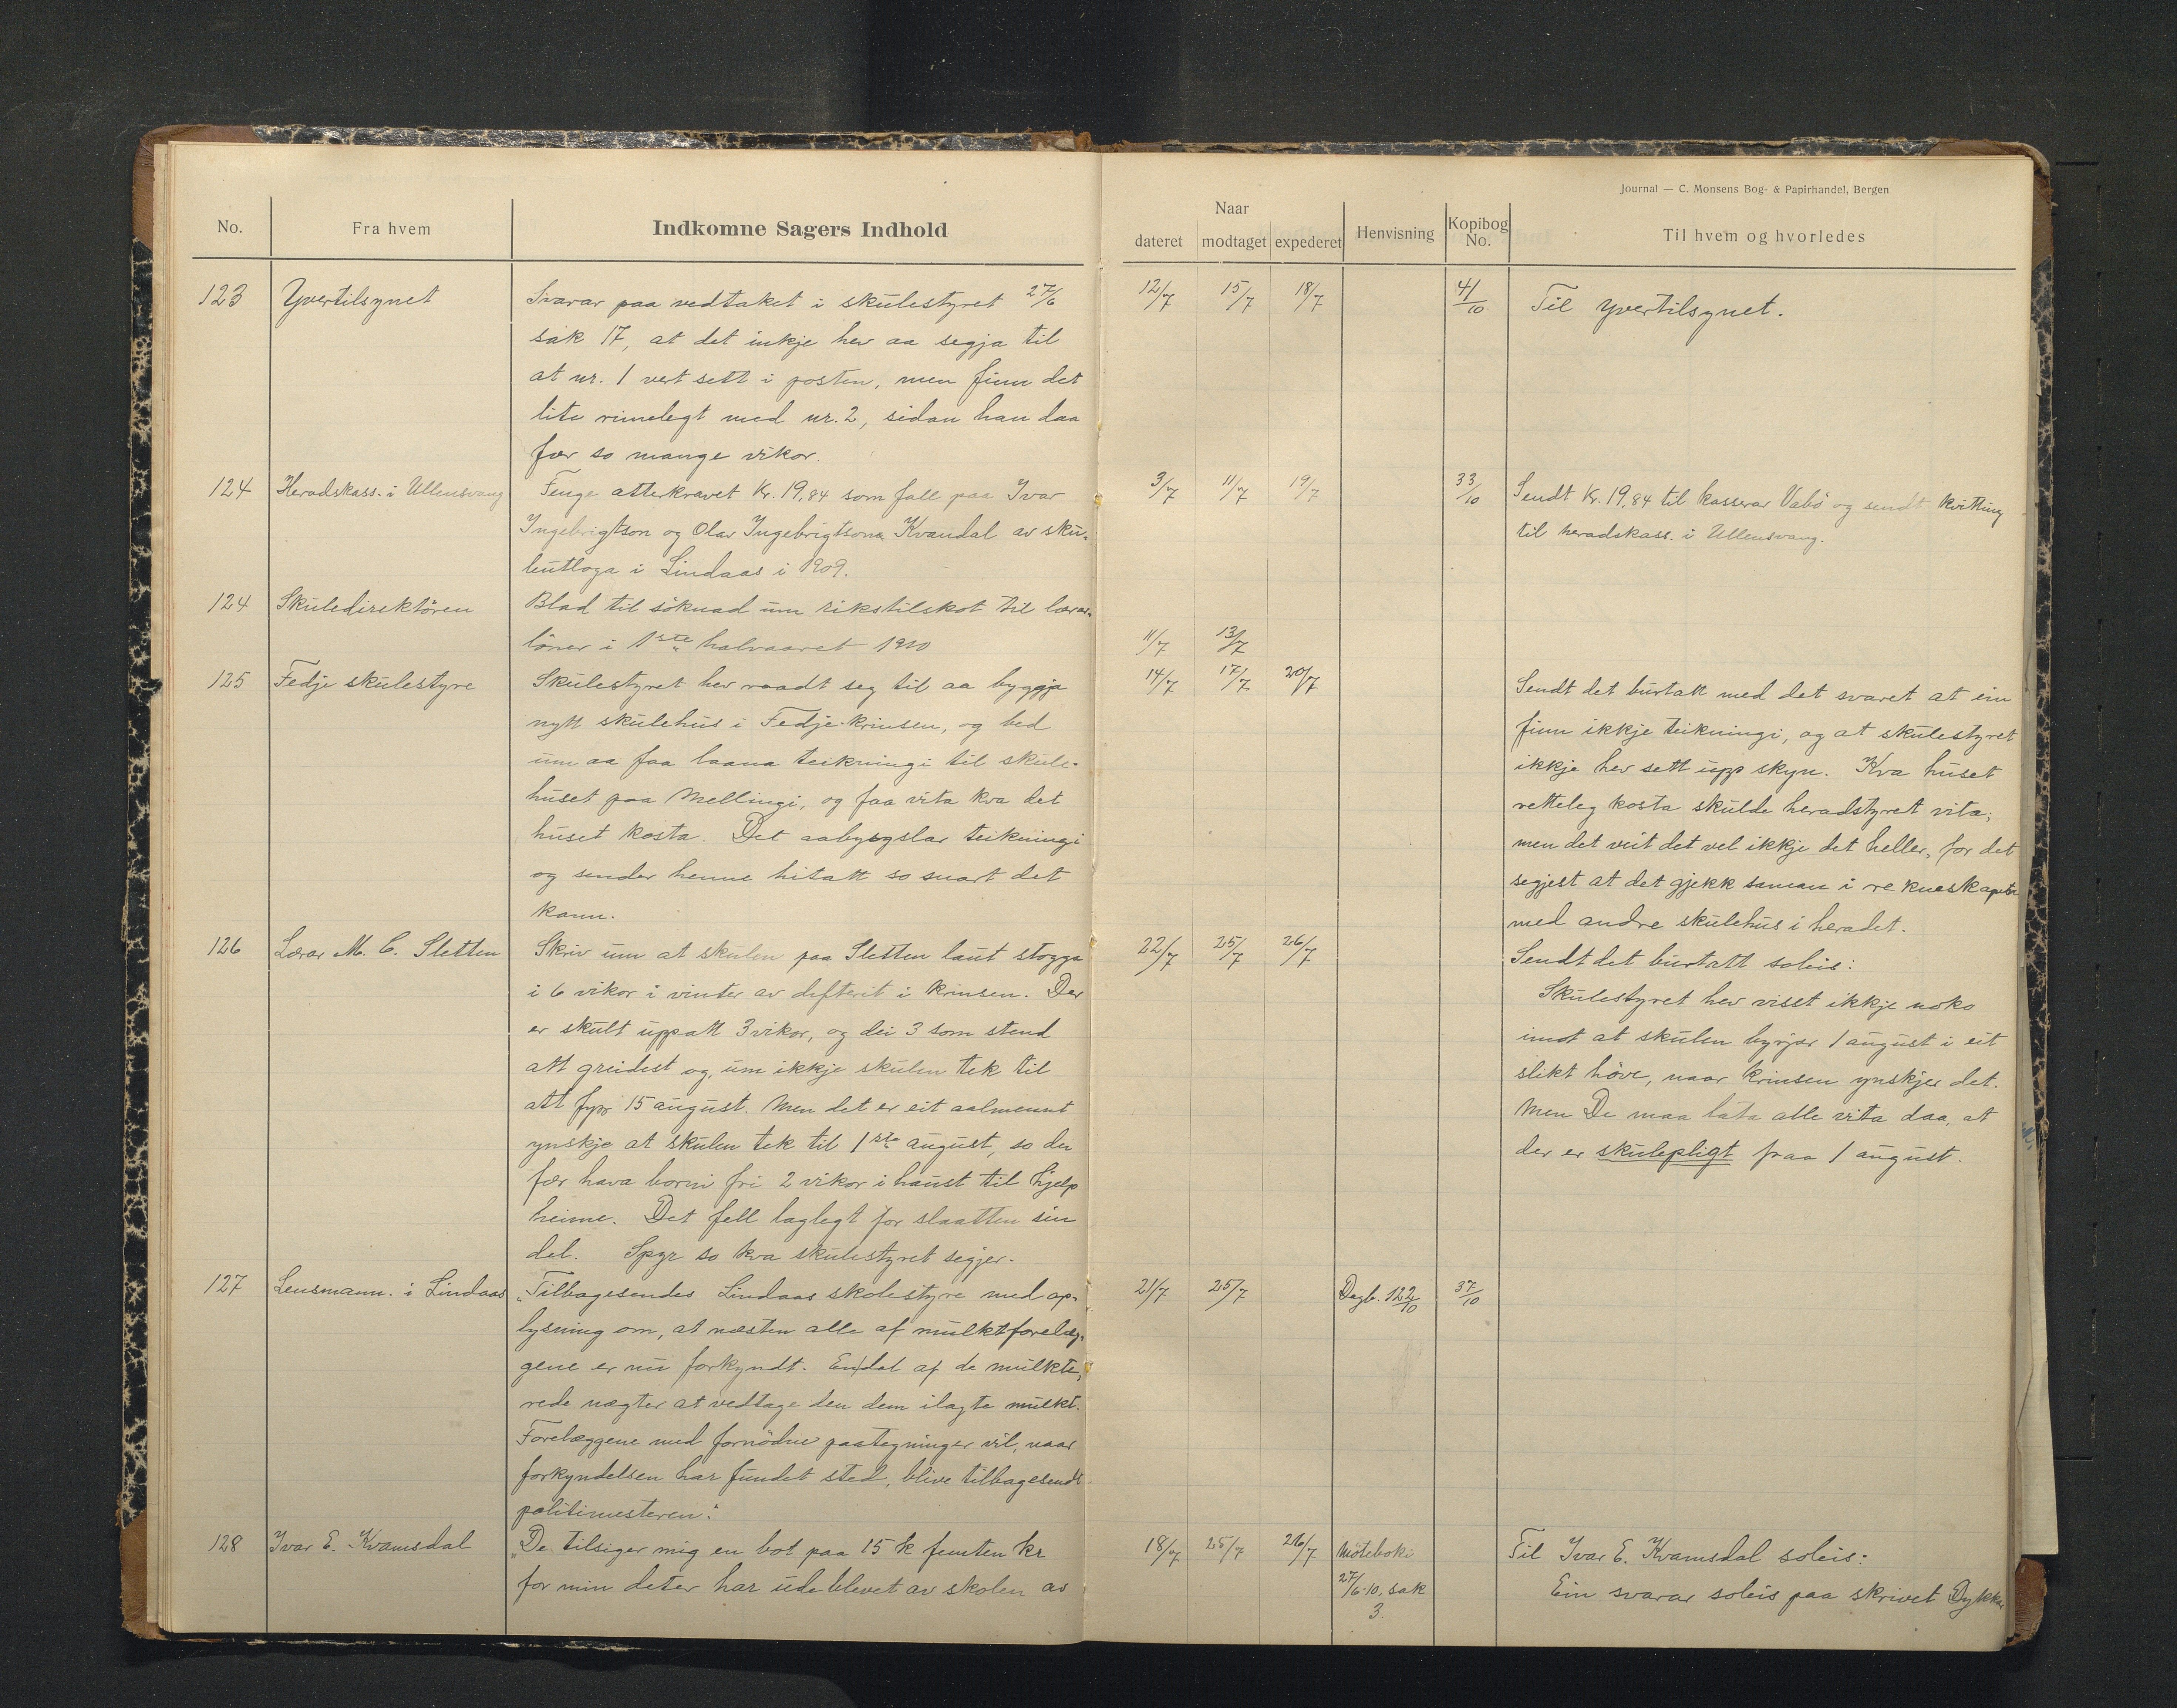 Journal — C. Monsens Bog- & Papirhandel, Bergen
No. Fra hvem Indkomne Sagers Indhold
Naar
dateret modtaget expederet Henvisning Kopibog No. Til hvem og hvorledes
123 Yvertilsynet Svarar paa vedtaket i skulestyret 27/6
sak 17, at det inkje hev aa segja til
at nr. 1 vert sett i posten, men finn det
lite rimelegt med nr. 2, sidan han daa
fær so mange vikor.
12/7 15/7 18/7 41/10 Til yvertilsynet.
124 Heradskass. i Ullensvang Fenge atterkravet Kr. 19,84 som fall paa Ivar
Ingebrigtson og Olav Ingebrigtson Kvandal av sku-
leutloga i Lindaas i 1909.
3/7 11/7 19/7 33/10 Sendt Kr. 19,84 til kasserar Vabö og sendt kvitting
til heradskass. i Ullensvang.
124 Skuledirektören Blad til söknad um rikstilskot til lærar-
löner i 1ste halvaaret 1910
11/7 13/7
125 Fedje skulestyre Skulestyret hev raadt seg til aa byggja
nytt skulehus i Fedje-krinsen, og bed
um aa faa laana teikningi til skule-
huset paa Mellingi, og faa vita kva det
huset kosta. Det aabyrgslar teikningi
og sender henne hitatt so snart det
kann.
14/7 17/7 20/7 Sendt det burtatt med det svaret at ein
finn ikkje teikningi, og at skulestyret
ikkje hev sett upp skyn. Kva huset
retteleg kosta skulde heradstyret vita;
men det veit det vel ikkje det heller, for det
segjest at det gjekk saman i rekneskapen
med andre skulehus i heradet.
126 Lærar M. C. Sletten Skriv um at skulen paa Sletten laut stogga
i 6 vikor i vinter av difterit i krinsen. Der
er skult uppatt 3 vikor, og dei 3 som stend
att greidest og, um ikkje skulen tek til
att fyrr 15 august. Men det er eit aalmennt
ynskje at skulen tek til 1ste august, so dei
fær hava borni fri 2 vikor i haust til hjelp
heime. Det fell laglegt for slaatten sin
del. Spyr so kva skulestyret segjer.
22/7 25/7 26/7 Sendt det burtatt soleis:
Skulestyret hev visst ikkje noko
imot at skulen byrjar 1 august i eit
slikt höve, naar krinsen ynskjer det.
Men De maa lata alle vita daa, at
der er skulepligt fraa 1 august.
127 Lensmann. i Lindaas „Tilbagesendes Lindaas skolestyre med op-
lysning om, at næsten alle af mulktforelæg-
gene er nu forkyndt. Endel af de mulkte-
rede nægter at vedtage den dem ilagte mulkt.
Forelæggene med fornödne paategninger vil, naar
forkyndelsen har fundet sted, blive tilbagesendt
politimesteren."
21/7 25/7 Dagb. 122/10 37/10
128 Ivar E. Kvamsdal „De tilsiger mig en bot paa 15 k femten kr
for min deter har ude blevet av skolen av
18/7 25/7 26/7 Möteboki
27/6-10, sak
3.
Til Ivar E. Kvamsdal soleis:
Ein svarar soleis paa skrivet Dykkar